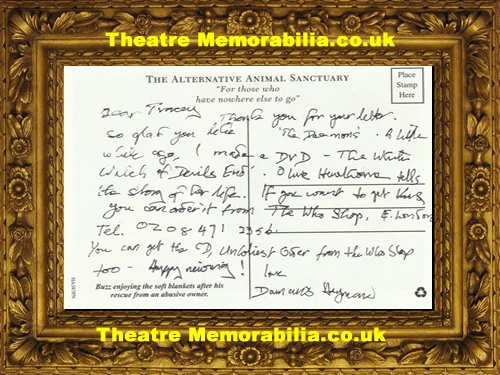 Theatre Memorabilia.co.uk
THE ALTERNATIVE ANIMAL SANCTUARY
"For those who
have nowhere else to go"
Place
Stamp
Here
Dear Tracey
Thank you for your letter.
So glad you like 'The Daemons'. A little
while ago, I made a DVD - The White
Witch of Devils End. Olive Hawthorne tells
the story of her life. If you want to get
you can order it from The Who Shop, E. London
Tel. 0208 471 2356.
You can get the CD, from the Who Shop
too - Happy viewing!
love
Damaris Hayman
Buzz enjoying the soft blankets after his
rescue from an abusive owner.
Theatre Memorabilia.co.uk